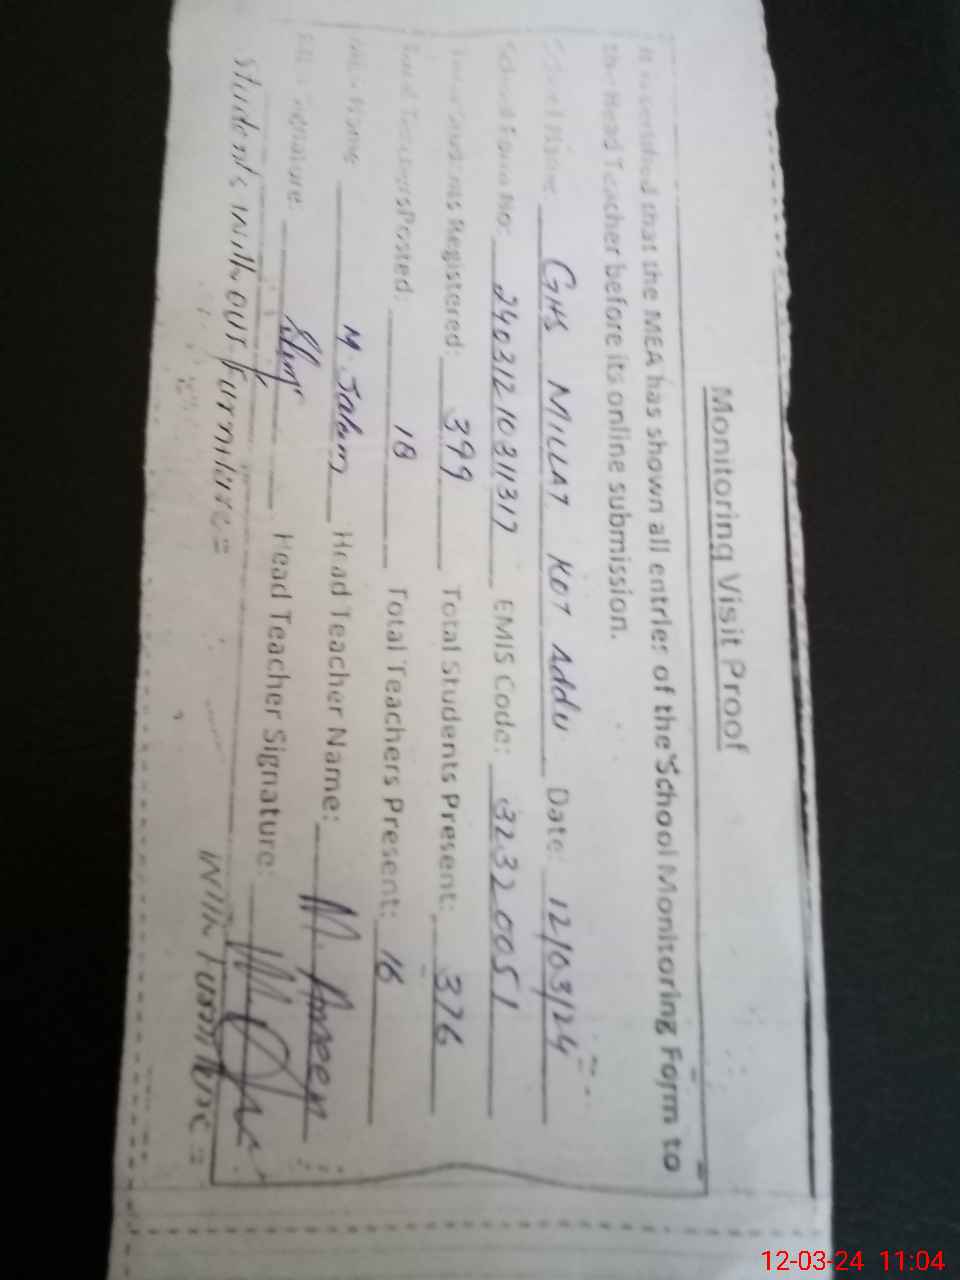 Monitoring Visit Proof
It is certified that the MEA has shown all entries of the School Monitoring Form to
the Head Teacher before its online submission.
School Name: GHS MILLAT KOT Addu Date: 12/03/24
School Form No: 2403121031317 EMIS Code: 32320051
Total Students Registered: 399 Total Students Present: 376
Total Teachers Posted: 18 Total Teachers Present: 16
MEA Name: M. Salum Head Teacher Name: M. Ameen
MEA Signature: Head Teacher Signature:
Students with our furniture = With Furniture =
12-03-24 11:04